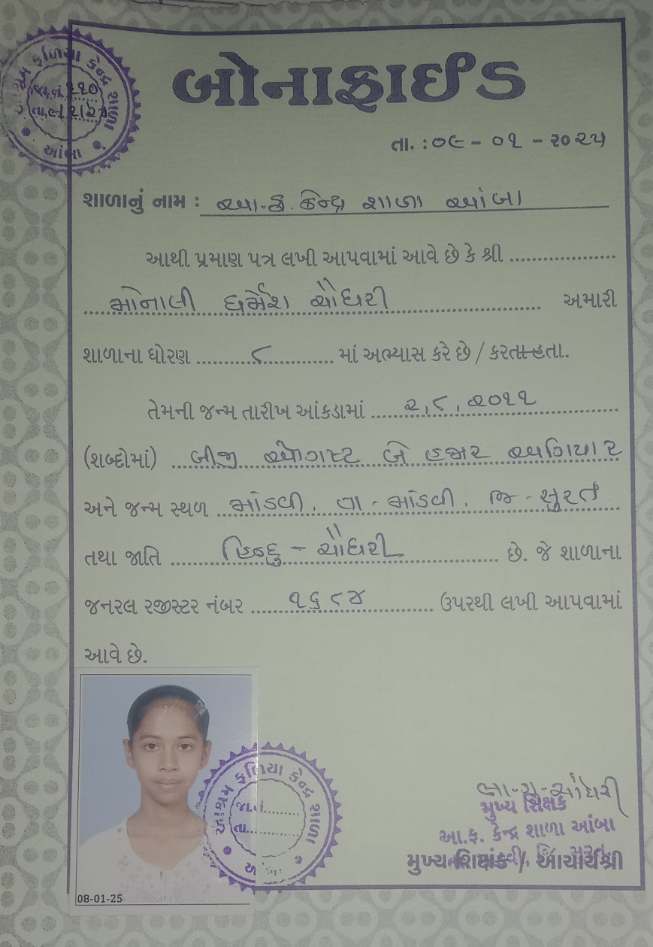 આશ્રમ ફળિયા કેન્દ્ર શાળા
જા.નં. ૨૧૦
તા.
આંબા
બોનાફાઈડ
તા. : ૦૯ - ૦૧ - ૨૦૨૫
શાળાનું નામ : આ.ફ. કેન્દ્ર શાળા આંબા
આથી પ્રમાણ પત્ર લખી આપવામાં આવે છે કે શ્રી
મોનાલી ધર્મેશ ચૌધરી અમારી
શાળાના ધોરણ ૮ માં અભ્યાસ કરે છે / કરતા હતા.
તેમની જન્મ તારીખ આંકડામાં ૨, ૮, ૨૦૧૧
(શબ્દોમાં) બીજી ઓગસ્ટ બે હજાર અગિયાર
અને જન્મ સ્થળ માંડવી, તા - માંડવી, જિ - સુરત
તથા જાતિ હિન્દુ - ચૌધરી છે. જે શાળાના
જનરલ રજીસ્ટર નંબર ૧૬૮૪ ઉપરથી લખી આપવામાં
આવે છે.
આશ્રમ ફળિયા કેન્દ્ર શાળા
જા.નં.
તા.
08-01-25
મુખ્ય શિક્ષક
આ.ફ. કેન્દ્ર શાળા આંબા
મુખ્ય શિક્ષક / આચાર્યશ્રી